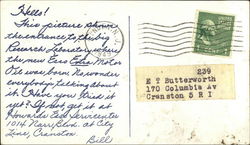 Hello!
This picture shows
the entrance to the big
Research Laboratory where
the new Esso Extra Motor
Oil was born. No wonder
everybody's talking about
it. Have you tried it
yet? If not, get it at
Howards Esso Servicenter
1014 Narr. Blvd. at City
Line, Cranston
Bill
239
E T Butterworth
170 Columbia Av
Cranston 5 R I